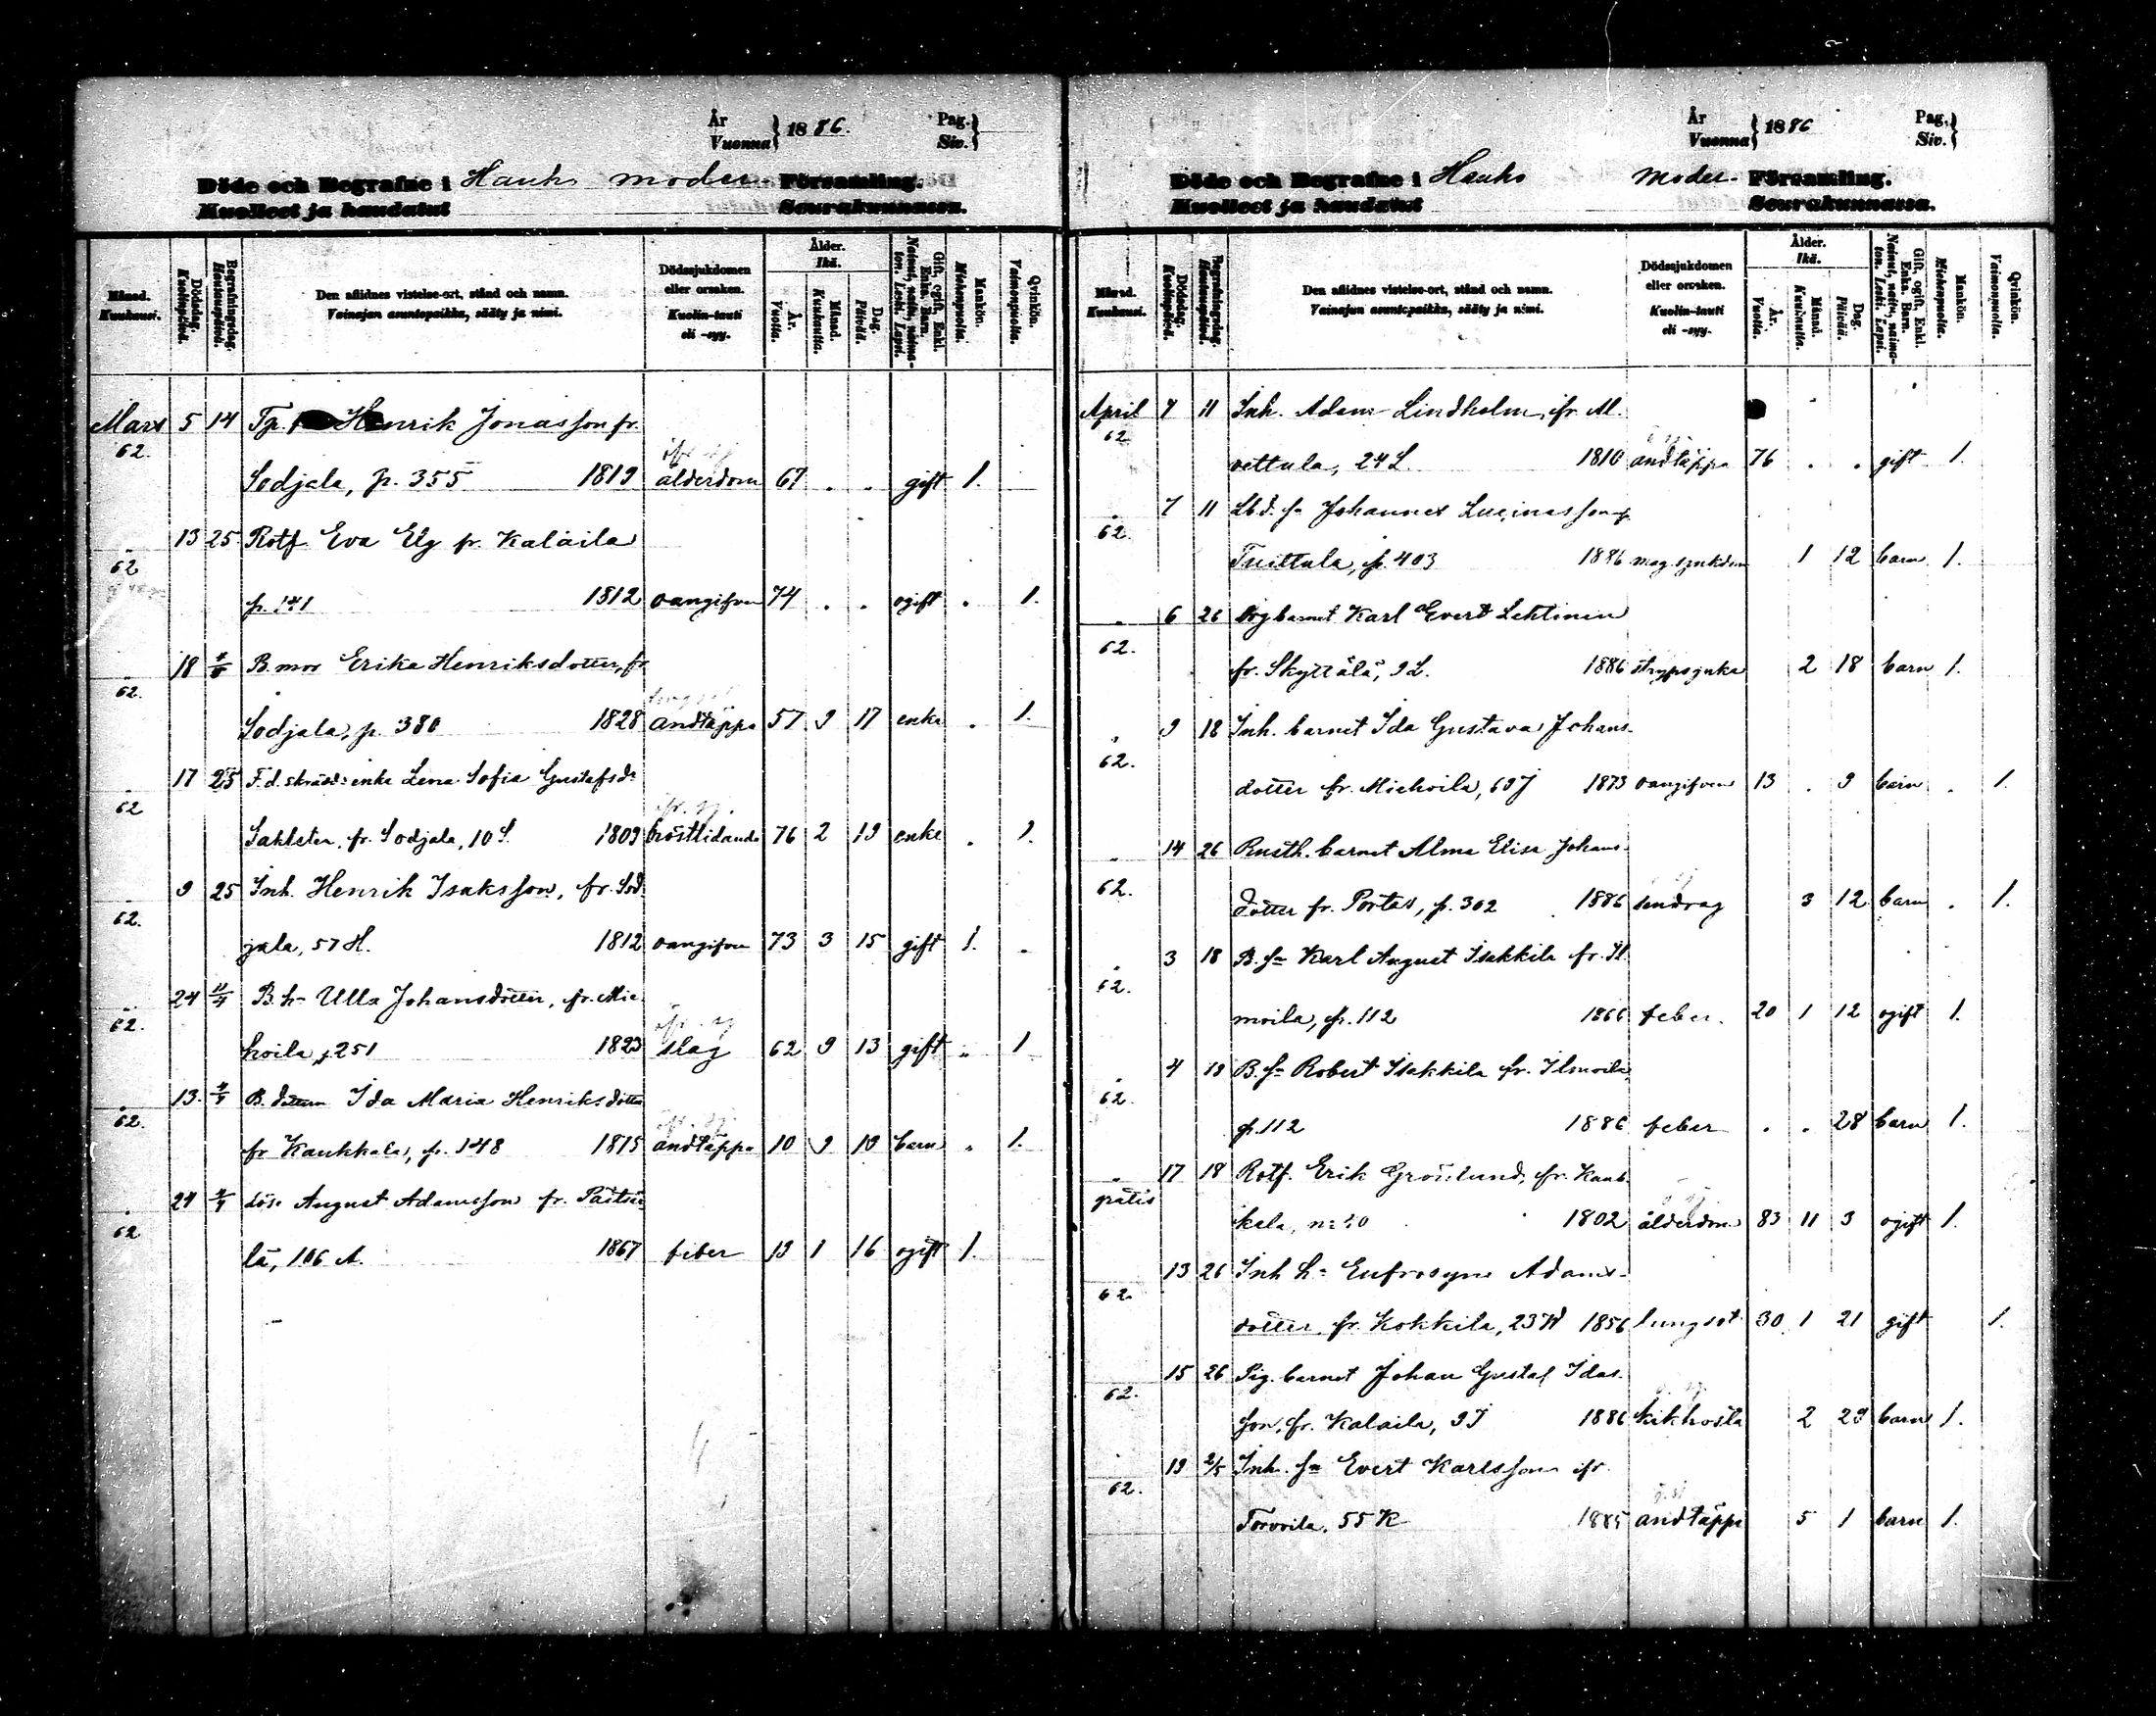 År
Vuonna } 1886.
Pag.
Siv. }
Döde och Begrafne i Hauho moder- Församling.
Kuolleet ja haudatut Seurakunnassa.
Månad. Kuukausi.
Dödsdag. Kuolinpäivä.
Begrafningsdag. Hautauspäivä.
Den aflidnes vistelse-ort, stånd och namn.
Vainajan asuntopaikka, sääty ja nimi.
Dödssjukdomen eller orsaken.
Kuolin-tauti eli -syy.
Ålder. Ikä.
År. Vuotta.
Månad. Kuukautta.
Dag. Päivää.
Gift, ogift, Enkl. Enka. Barn.
Nainut, naitu, naimaton. Leski. Lapsi.
Mankön. Miehenpuolia.
Qvinkön. Vaimonpuolia.
Mars 5 14 Tp. Henrik Jonasson fr.
62. Sodjala, p. 355 1819 ålderdom 67 . . gift 1.
13 25 Rotf. Eva Elg fr. Kalaila
62 p. 141 1812 oangifven 74 . . ogift . 1.
18 B. mor Erika Henriksdotter, fr
62. Sodjala, p. 380 1828 andtäppa 57 9 17 enka . 1.
17 25 F. d. skräd: enka Lena Sofia Gustafsd:
62 fr. Sodjala, 10 S. 1809 bröstlidande 76 2 19 enka . 1.
9 25 Inh. Henrik Isaksson, fr. Sod
62. jala, 57 H. 1812 oangifven 73 3 15 gift 1. .
24 11/4 B. h- Ulla Johansdotter, fr. Mie
62. hoila, 251 1823 slag 62 9 13 gift .. 1
13. B. dottern Ida Maria Henriksdotter
62. fr Kaukkala, p. 148 1875 andtäppa 10 9 19 barn . 1.
24 lös. August Adamsson fr.
62 lä, 106 A. 1867 feber 19 1 16 ogift 1.
År
Vuonna } 1886
Pag.
Siv. }
Döde och Begrafne i Hauho Moder- Församling.
Kuolleet ja haudatut Seurakunnassa.
Månad. Kuukausi.
Dödsdag. Kuolinpäivä.
Begrafningsdag. Hautauspäivä.
Den aflidnes vistelse-ort, stånd och namn.
Vainajan asuntopaikka, sääty ja nimi.
Dödssjukdomen eller orsaken.
Kuolin-tauti eli -syy.
Ålder. Ikä.
År. Vuotta.
Månad. Kuukautta.
Dag. Päivää.
Gift, ogift, Enkl. Enka. Barn.
Nainut, naitu, naimaton. Leski. Lapsi.
Mankön. Miehenpuolia.
Qvinkön. Vaimonpuolia.
April 7 11 Inh. Adam Lindholm, fr. Al.
62 vettula, 24 L. 1810 andtäppa 76 . . gift 1.
7 11 Johannes
62. Tuittula, p. 403 1886 mag sjukdom 1 12 barn 1.
6 26 Karl Evert Lehtinen
62. fr. Skyttälä, 9 L. 1886 strypsjuka 2 18 barn 1.
9 18 Inh. barnet Ida Gustava Johans-
62. dotter fr. Miehoila, 69 J 1873 oangifven 13 . 9 barn . 1.
14 26 Rusth. barnet Alma Elisa Johans-
62. dotter fr. Portas, p. 302 1886 sendrag 3 12 barn . 1.
3 18 B. s- Karl August Isakkila fr. Il
62. moila, p. 112 1866 feber. 20 1 12 ogift 1.
4 18 B. s- Robert Isakkila fr. Ilmoila,
62. p. 112 1886 feber . . 28 barn 1.
17 18 Rotf. Erik Grönlund, fr. Kauk
gratis kala, 1802 ålderdom 83 11 3 ogift 1.
13 26 Inh h- Eufrosyne Adams-
62. dotter, fr. Kokkila, 1856 lungsot 30 1 21 gift 1.
15 26 Pig. barnet Johan Gustaf Idas-
62. son, fr. Kalaila, 9 I 1886 kikhosta 2 29 barn 1.
19 2/5 Inh. s- Evert Karlsson fr.
62. Torvoila, 55 K 1885 andtäppa 5 1 barn 1.